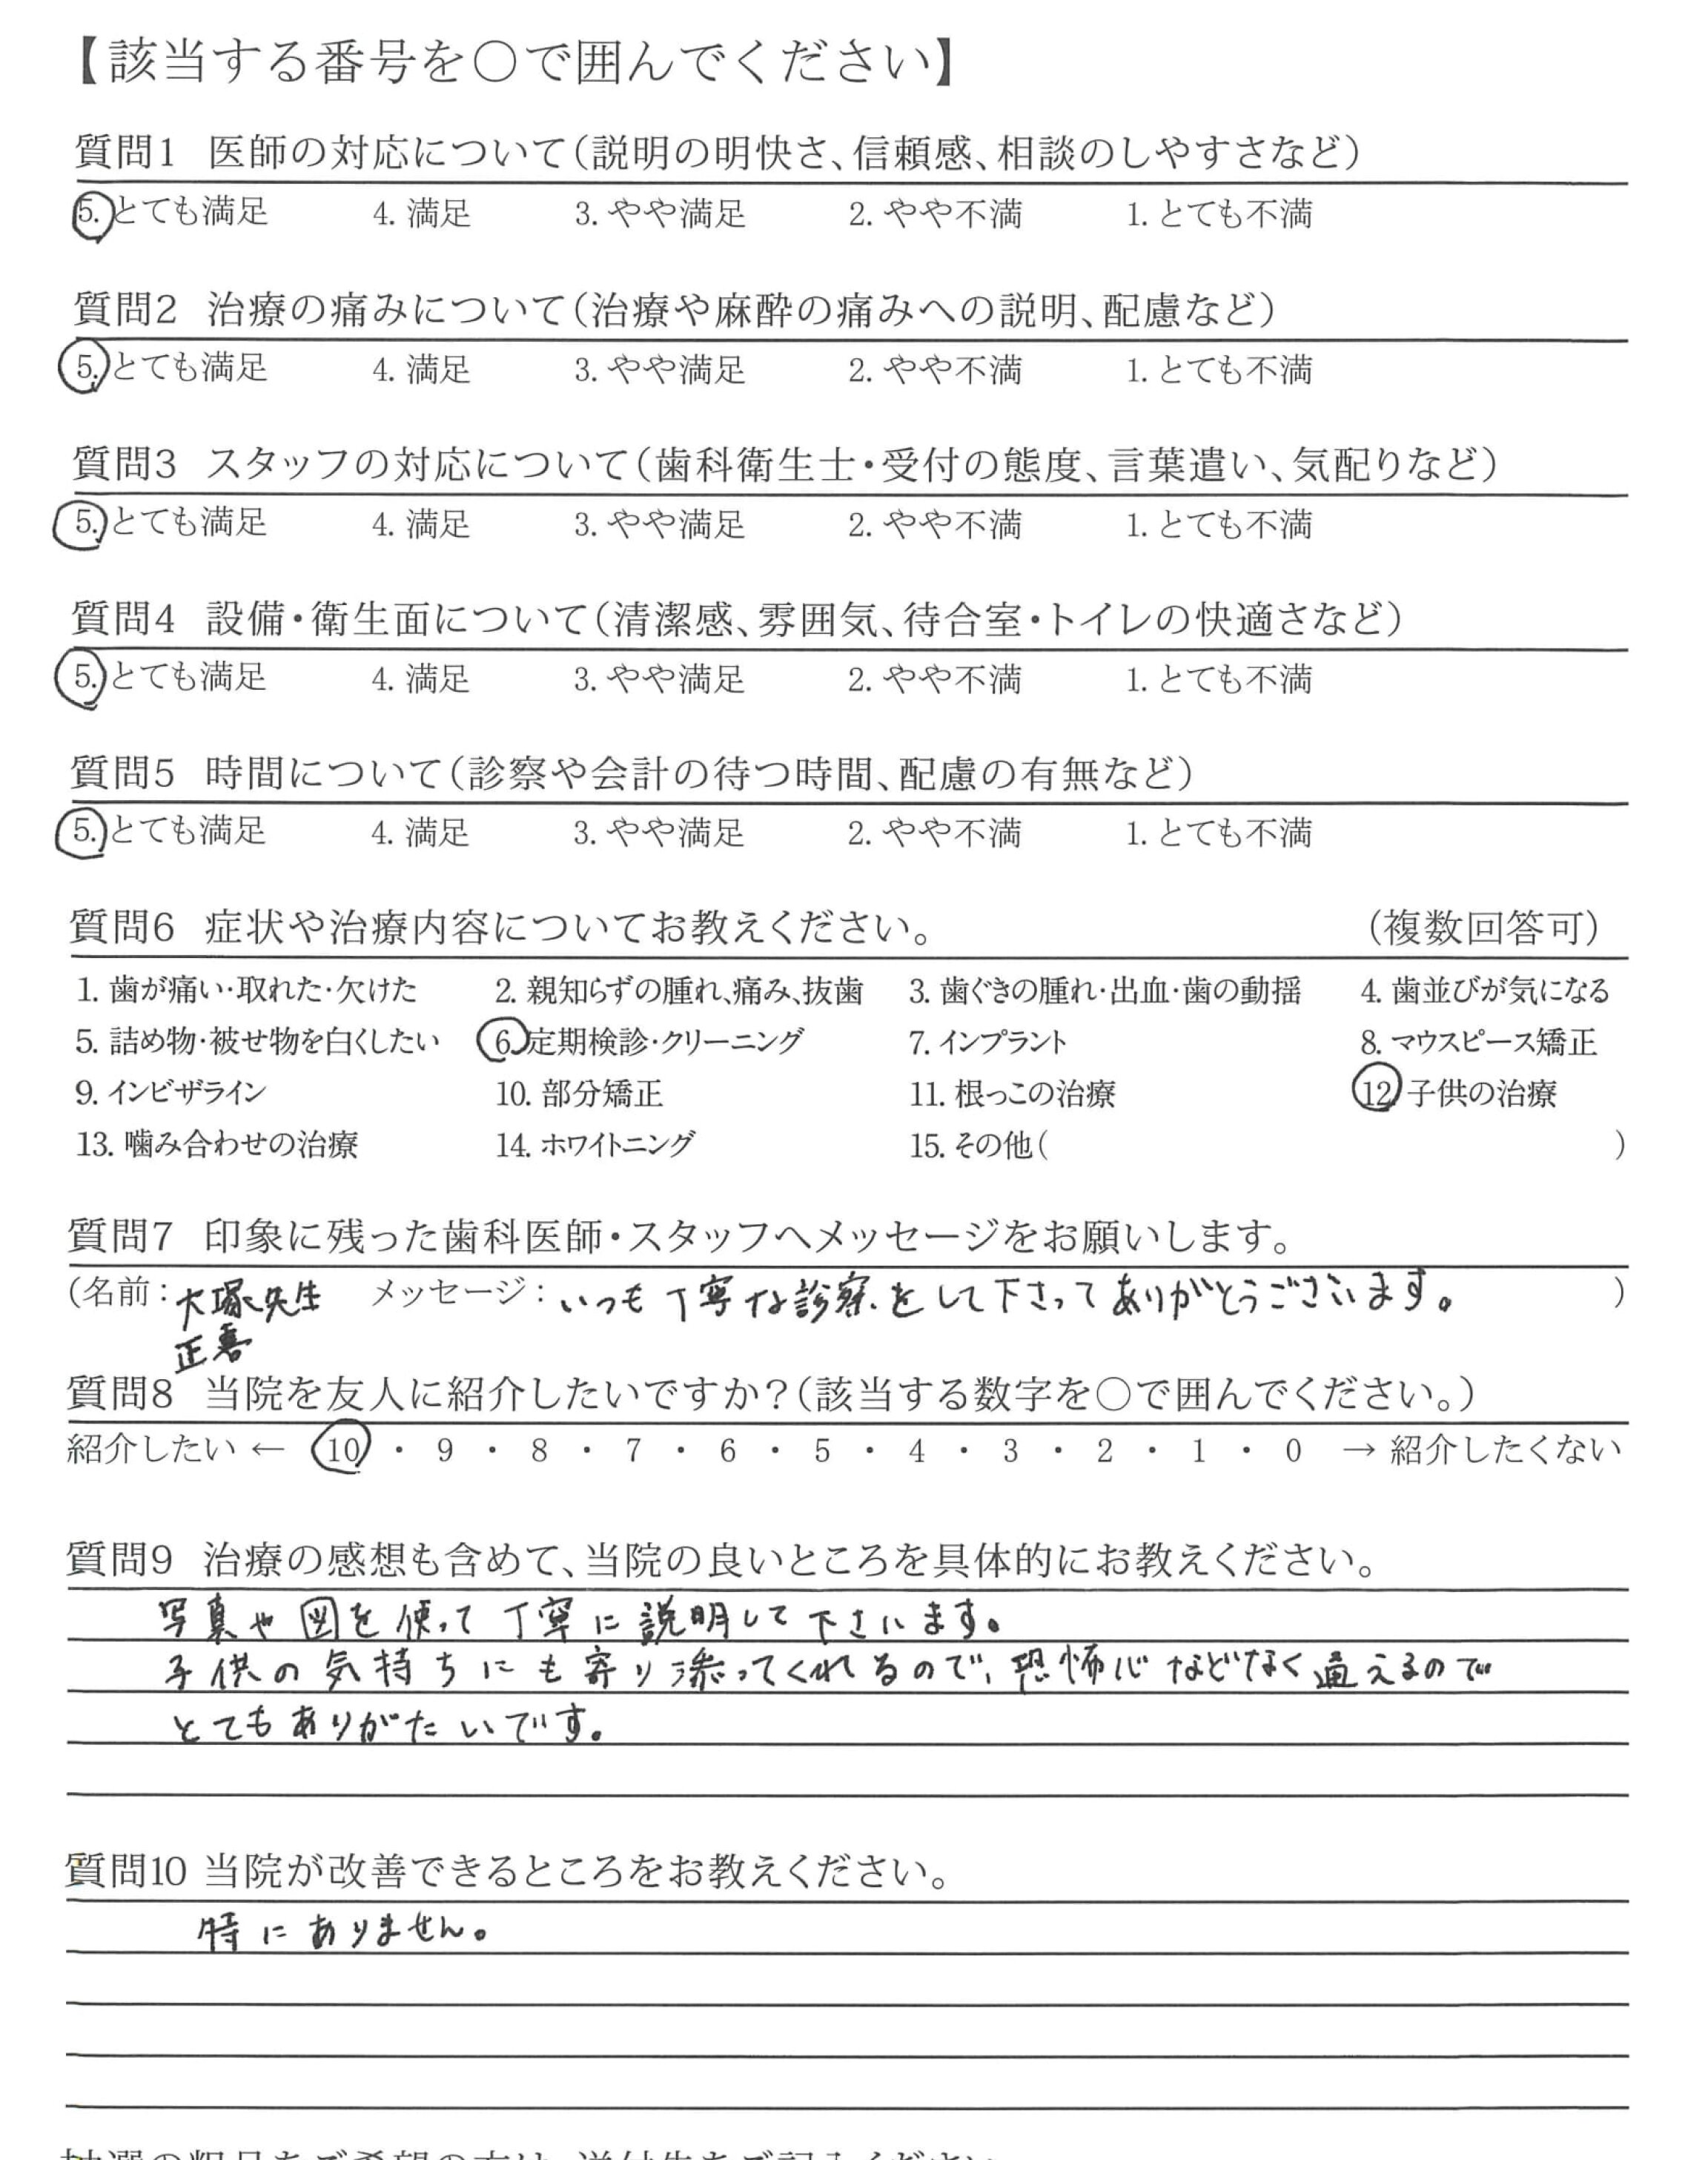 【該当する番号を○で囲んでください】
質問1 医師の対応について(説明の明快さ、信頼感、相談のしやすさなど)
5. とても満足 4. 満足 3. やや満足 2. やや不満 1. とても不満
質問2 治療の痛みについて(治療や麻酔の痛みへの説明、配慮など)
5. とても満足 4. 満足 3. やや満足 2. やや不満 1. とても不満
質問3 スタッフの対応について(歯科衛生士・受付の態度、言葉遣い、気配りなど)
5. とても満足 4. 満足 3. やや満足 2. やや不満 1. とても不満
質問4 設備・衛生面について(清潔感、雰囲気、待合室・トイレの快適さなど)
5. とても満足 4. 満足 3. やや満足 2. やや不満 1. とても不満
質問5 時間について(診察や会計の待つ時間、配慮の有無など)
5. とても満足 4. 満足 3. やや満足 2. やや不満 1. とても不満
質問6 症状や治療内容についてお教えください。 (複数回答可)
1. 歯が痛い・取れた・欠けた 2. 親知らずの腫れ、痛み、抜歯 3. 歯ぐきの腫れ・出血・歯の動揺 4. 歯並びが気になる
5. 詰め物・被せ物を白くしたい 6. 定期検診・クリーニング 7. インプラント 8. マウスピース矯正
9. インビザライン 10. 部分矯正 11. 根っこの治療 12. 子供の治療
13. 噛み合わせの治療 14. ホワイトニング 15. その他( )
質問7 印象に残った歯科医師・スタッフへメッセージをお願いします。
(名前：大塚先生 メッセージ：いつも丁寧な診察をして下さってありがとうございます。 )
正善
質問8 当院を友人に紹介したいですか？(該当する数字を○で囲んでください。)
紹介したい ← 10 ・ 9 ・ 8 ・ 7 ・ 6 ・ 5 ・ 4 ・ 3 ・ 2 ・ 1 ・ 0 → 紹介したくない
質問9 治療の感想も含めて、当院の良いところを具体的にお教えください。
写真や図を使って丁寧に説明して下さいます。
子供の気持ちにも寄り添ってくれるので、恐怖心などなく通えるので
とてもありがたいです。
質問10 当院が改善できるところをお教えください。
特にありません。